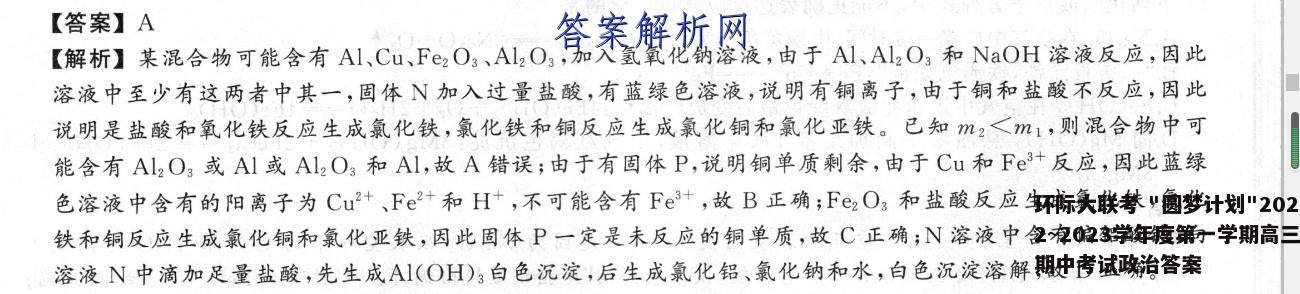 【答案】A
答案解析网
【解析】某混合物可能含有 Al、Cu、Fe₂O₃、Al₂O₃,加入氢氧化钠溶液,由于 Al、Al₂O₃ 和 NaOH 溶液反应,因此
溶液中至少有这两者中其一,固体 N 加入过量盐酸,有蓝绿色溶液,说明有铜离子,由于铜和盐酸不反应,因此
说明是盐酸和氧化铁反应生成氯化铁,氯化铁和铜反应生成氯化铜和氯化亚铁。已知 m₂<m₁,则混合物中可
能含有 Al₂O₃ 或 Al 或 Al₂O₃ 和 Al,故 A 错误;由于有固体 P,说明铜单质剩余,由于 Cu 和 Fe³⁺ 反应,因此蓝绿
色溶液中含有的阳离子为 Cu²⁺、Fe²⁺ 和 H⁺,不可能含有 Fe³⁺,故 B 正确;Fe₂O₃ 和盐酸反应
铁和铜反应生成氯化铜和氯化亚铁,因此固体 P 一定是未反应的铜单质,故 C 正确;N 溶液中
溶液 N 中滴加足量盐酸,先生成 Al(OH)₃ 白色沉淀,后生成氯化铝、氯化钠和水,白色沉淀溶解
环际大联考 "圆梦计划"202
2~2023学年度第一学期高三
期中考试政治答案